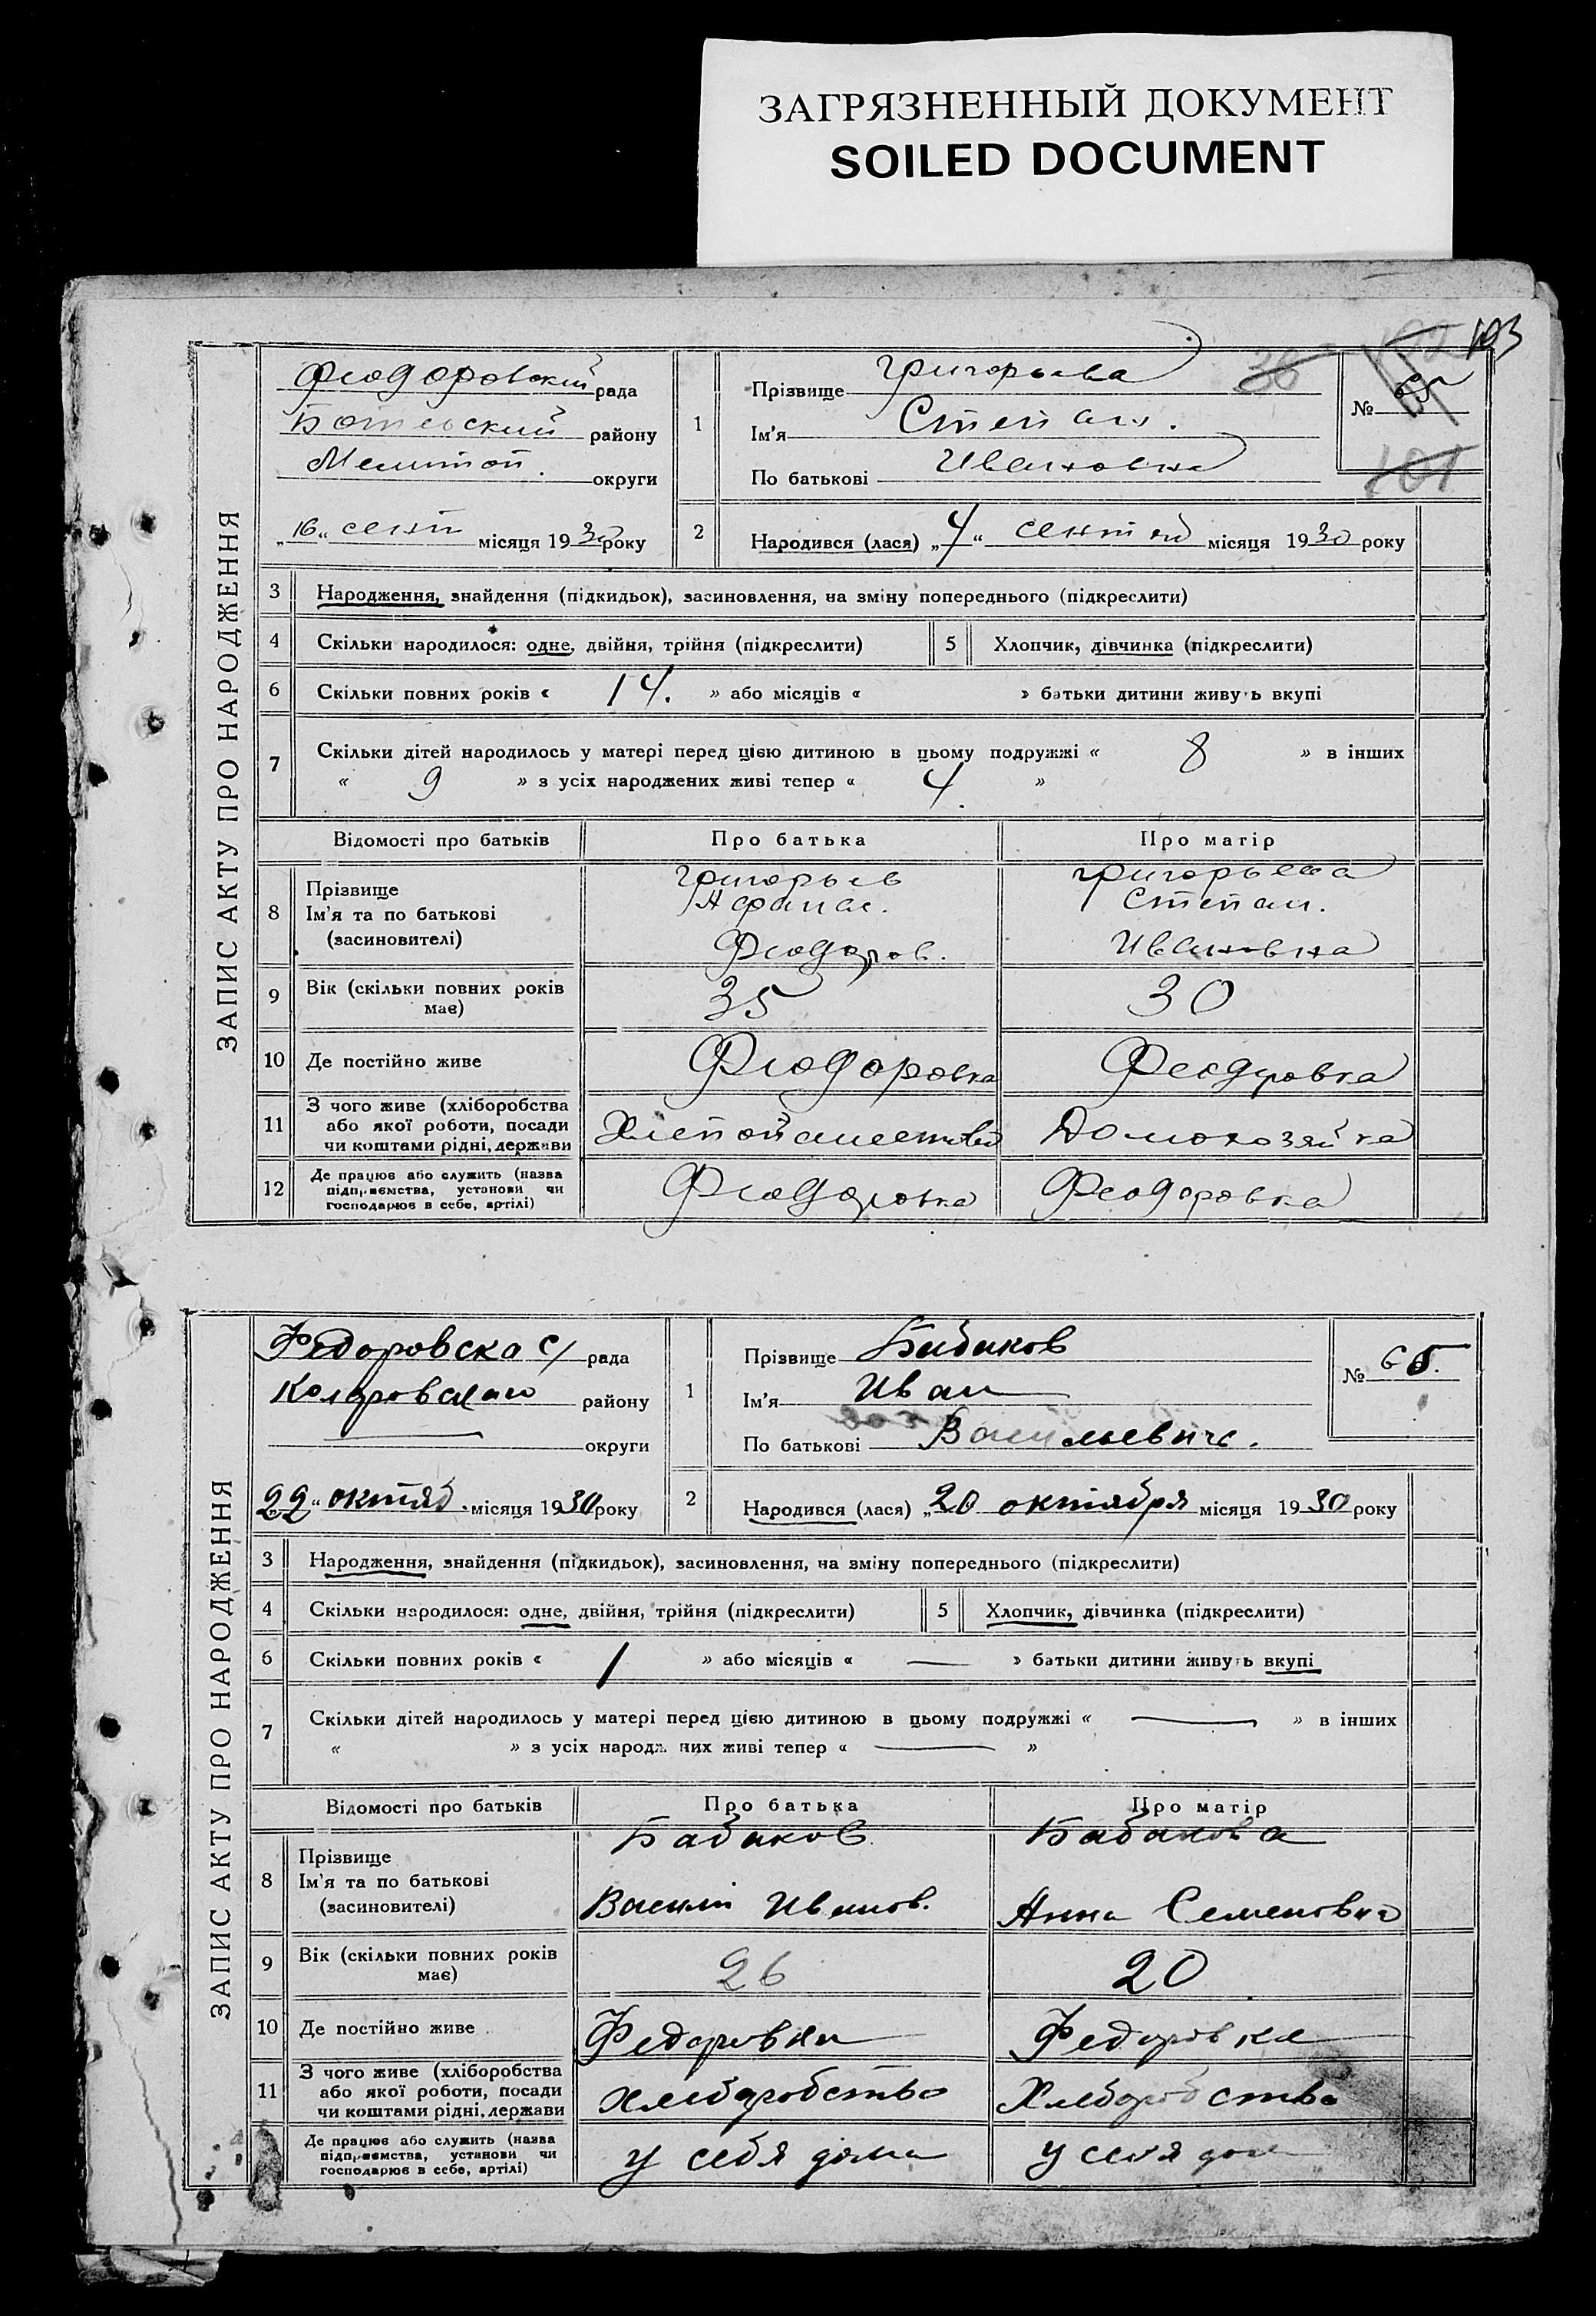 ЗАГРЯЗНЕННЫЙ ДОКУМЕНТ
SOILED DOCUMENT
103
ЗАПИС АКТУ ПРО НАРОДЖЕННЯ
Феодоровский рада
района
округи
„16“ сент місяця 1930 року
1
Прізвище Григорьева
36
Ім'я Степан.
По батькові Ивановна
№ 65
101
2
Народився (лася) „4“ сентяб місяця 1930 року
3 Народження, знайдення (підкидьок), засиновлення, на зміну попереднього (підкреслити)
4 Скільки народилося: одне, двійня, трійня (підкреслити) 5 Хлопчик, дівчинка (підкреслити)
6 Скільки повних років « 14. » або місяців « » батьки дитини живуть вкупі
7 Скільки дітей народилось у матері перед цією дитиною в цьому подружжі « 8 » в інших
« 9 » з усіх народжених живі тепер « 4. »
Відомості про батьків Про батька Про матір
8 Прізвище Григорьев Григорьева
Ім'я та по батькові Афанас. Степан.
(засиновителі) Феодоров. Ивановна
9 Вік (скільки повних років має) 35 30
10 Де постійно живе Феодоровка Феодоровка
11 З чого живе (хліборобства або якої роботи, посади чи коштами рідні, держави Домохозяйка
12 Де працює або служить (назва підприємства, установи чи господарює в себе, артілі) Феодоровка Феодоровка
ЗАПИС АКТУ ПРО НАРОДЖЕННЯ
Федоровска с/ рада
району
округи
22“ октяб. місяця 1930 року
1
Прізвище Бабаков
Ім'я Иван
По батькові Васильевич.
№ 66.
2
Народився (лася) „20 октября місяця 1930 року
3 Народження, знайдення (підкидьок), засиновлення, на зміну попереднього (підкреслити)
4 Скільки народилося: одне, двійня, трійня (підкреслити) 5 Хлопчик, дівчинка (підкреслити)
6 Скільки повних років « 1 » або місяців « — » батьки дитини живуть вкупі
7 Скільки дітей народилось у матері перед цією дитиною в цьому подружжі « — » в інших
« » з усіх народжених живі тепер « — »
Відомості про батьків Про батька Про матір
8 Прізвище Бабаков Бабакова
Ім'я та по батькові
(засиновителі) Василий Иванов. Анна Семеновна
9 Вік (скільки повних років має) 26 20
10 Де постійно живе Федоровка Федоровка
11 З чого живе (хліборобства або якої роботи, посади чи коштами рідні, держави Хлеборобство Хлеборобство
12 Де працює або служить (назва підприємства, установи чи господарює в себе, артілі) у себя дома у себя дома